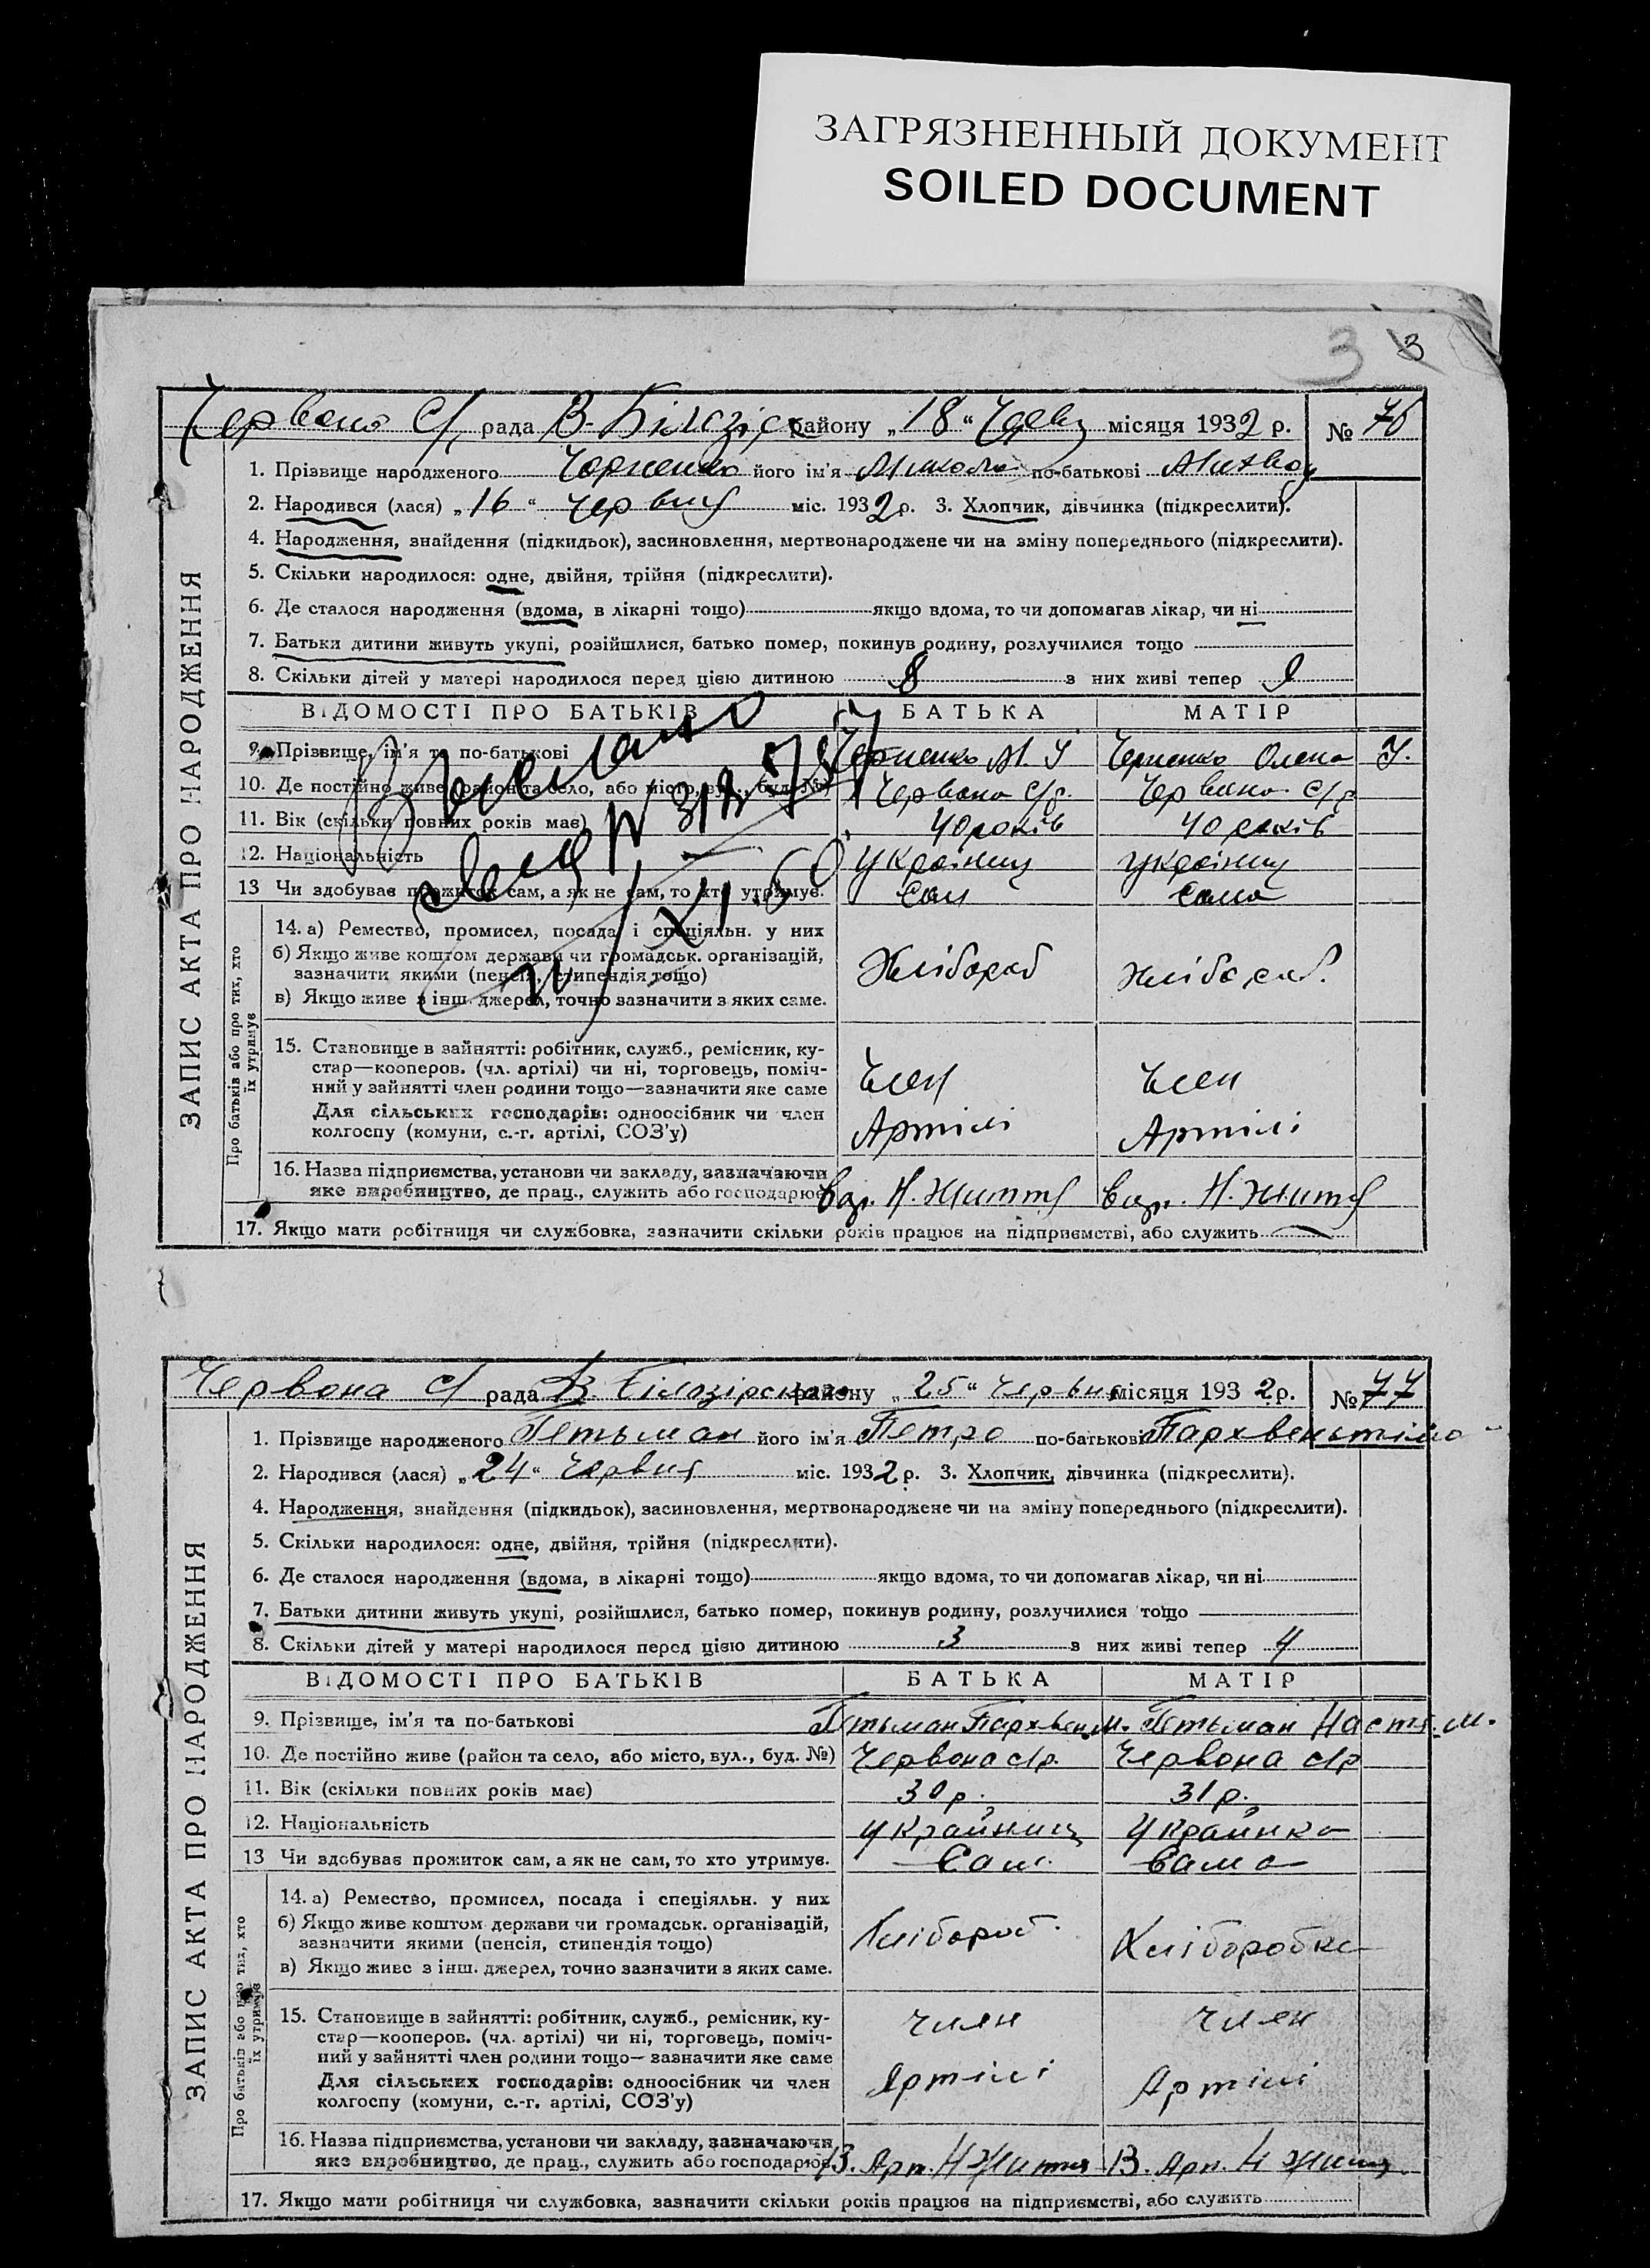 ЗАГРЯЗНЕННЫЙ ДОКУМЕНТ
SOILED DOCUMENT
3 3
Червона С/ рада В. Білозірс району „18“ Черв місяця 1932 р. № 76
ЗАПИС АКТА ПРО НАРОДЖЕННЯ
1. Прізвище народженого Чорненко його ім'я Микола по-батькові
2. Народився (лася) „16“ червня міс. 1932 р. 3. Хлопчик, дівчинка (підкреслити).
4. Народження, знайдення (підкидьок), засиновлення, мертвонароджене чи на зміну попереднього (підкреслити).
5. Скільки народилося: одне, двійня, трійня (підкреслити).
6. Де сталося народження (вдома, в лікарні тощо) якщо вдома, то чи допомагав лікар, чи ні
7. Батьки дитини живуть укупі, розійшлися, батько помер, покинув родину, розлучилися тощо
8. Скільки дітей у матері народилося перед цією дитиною 8 з них живі тепер 9
ВІДОМОСТІ ПРО БАТЬКІВ БАТЬКА МАТІР
9. Прізвище, ім'я та по-батькові Черненко М. У Черненко Олена У.
10. Де постійно живе (район та село, або місто, вул., буд. №) Червона с/р. Червона с/р
11. Вік (скільки повних років має) 40 років 40 років
12. Національність українец українец
13 Чи здобуває прожиток сам, а як не сам, то хто утримує. Сам Сама
Про батьків або про тих, хто їх утримує
14. а) Ремество, промисел, посада і спеціяльн. у них
б) Якщо живе коштом держави чи громадськ. організацій,
зазначити якими (пенсія, стипендія тощо) Хлібороб Хлібороб.
в) Якщо живе з інш. джерел, точно зазначити з яких саме.
15. Становище в зайнятті: робітник, служб., ремісник, ку-
стар—кооперов. (чл. артілі) чи ні, торговець, поміч- Член Член
ний у зайнятті член родини тощо—зазначити яке саме
Для сільських господарів: одноосібник чи член Артілі Артілі
колгоспу (комуни, с.-г. артілі, СОЗ'у)
16. Назва підприємства, установи чи закладу, зазначаючи
яке виробництво, де прац., служить або господарює Н. Життя Н. Життя
17. Якщо мати робітниця чи службовка, зазначити скільки років працює на підприємстві, або служить
Червона С/ рада В. Білозірського району „25“ Червня місяця 1932 р. № 77
ЗАПИС АКТА ПРО НАРОДЖЕННЯ
1. Прізвище народженого Гетьман його ім'я Петро по-батькові
2. Народився (лася) „24“ Червня міс. 1932 р. 3. Хлопчик, дівчинка (підкреслити).
4. Народження, знайдення (підкидьок), засиновлення, мертвонароджене чи на зміну попереднього (підкреслити).
5. Скільки народилося: одне, двійня, трійня (підкреслити).
6. Де сталося народження (вдома, в лікарні тощо) якщо вдома, то чи допомагав лікар, чи ні
7. Батьки дитини живуть укупі, розійшлися, батько помер, покинув родину, розлучилися тощо
8. Скільки дітей у матері народилося перед цією дитиною 3 з них живі тепер 4
ВІДОМОСТІ ПРО БАТЬКІВ БАТЬКА МАТІР
9. Прізвище, ім'я та по-батькові Гетьман Пархвен. М. Гетьман Настя. М.
10. Де постійно живе (район та село, або місто, вул., буд. №) Червона с/р. Червона с/р
11. Вік (скільки повних років має) 30 р. 31 р.
12. Національність Українец Українка
13 Чи здобуває прожиток сам, а як не сам, то хто утримує. Сам. Сама
Про батьків або про тих, хто їх утримує
14. а) Ремество, промисел, посада і спеціяльн. у них
б) Якщо живе коштом держави чи громадськ. організацій,
зазначити якими (пенсія, стипендія тощо) Хлібороб. Хліборобка
в) Якщо живе з інш. джерел, точно зазначити з яких саме.
15. Становище в зайнятті: робітник, служб., ремісник, ку- Член Член
стар—кооперов. (чл. артілі) чи ні, торговець, поміч-
ний у зайнятті член родини тощо—зазначити яке саме
Для сільських господарів: одноосібник чи член Артілі Артілі
колгоспу (комуни, с.-г. артілі, СОЗ'у)
16. Назва підприємства, установи чи закладу, зазначаючи
яке виробництво, де прац., служить або господарює В. Арт. Н Життя В. Арт. Н Життя
17. Якщо мати робітниця чи службовка, зазначити скільки років працює на підприємстві, або служить